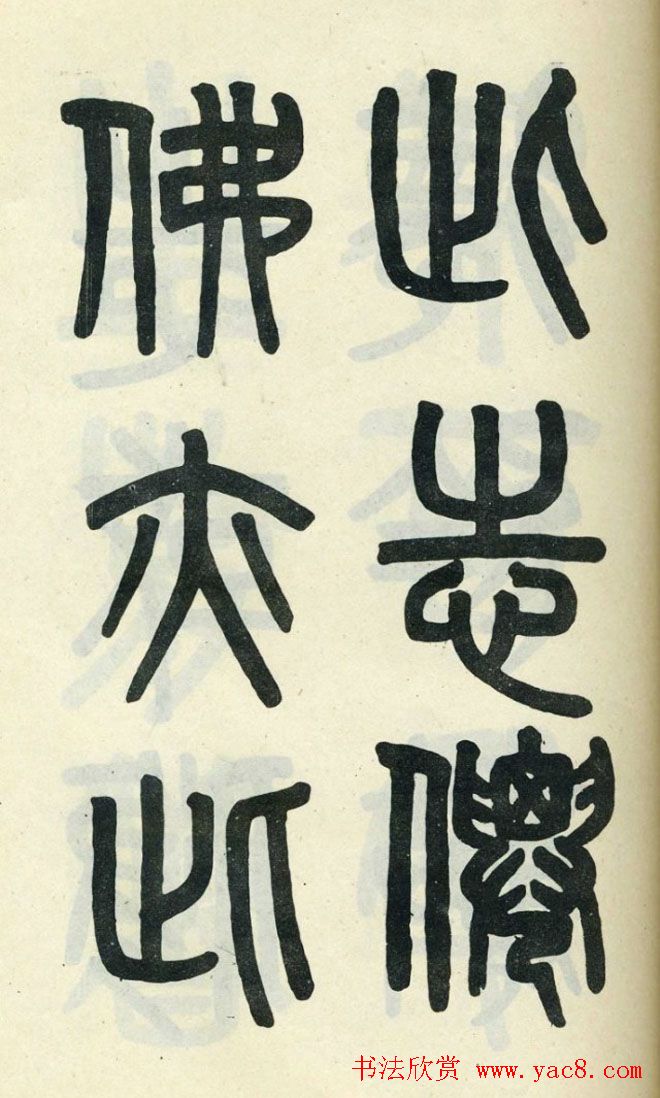 此志僊
佛亦此
书法欣赏 www.yac8.com